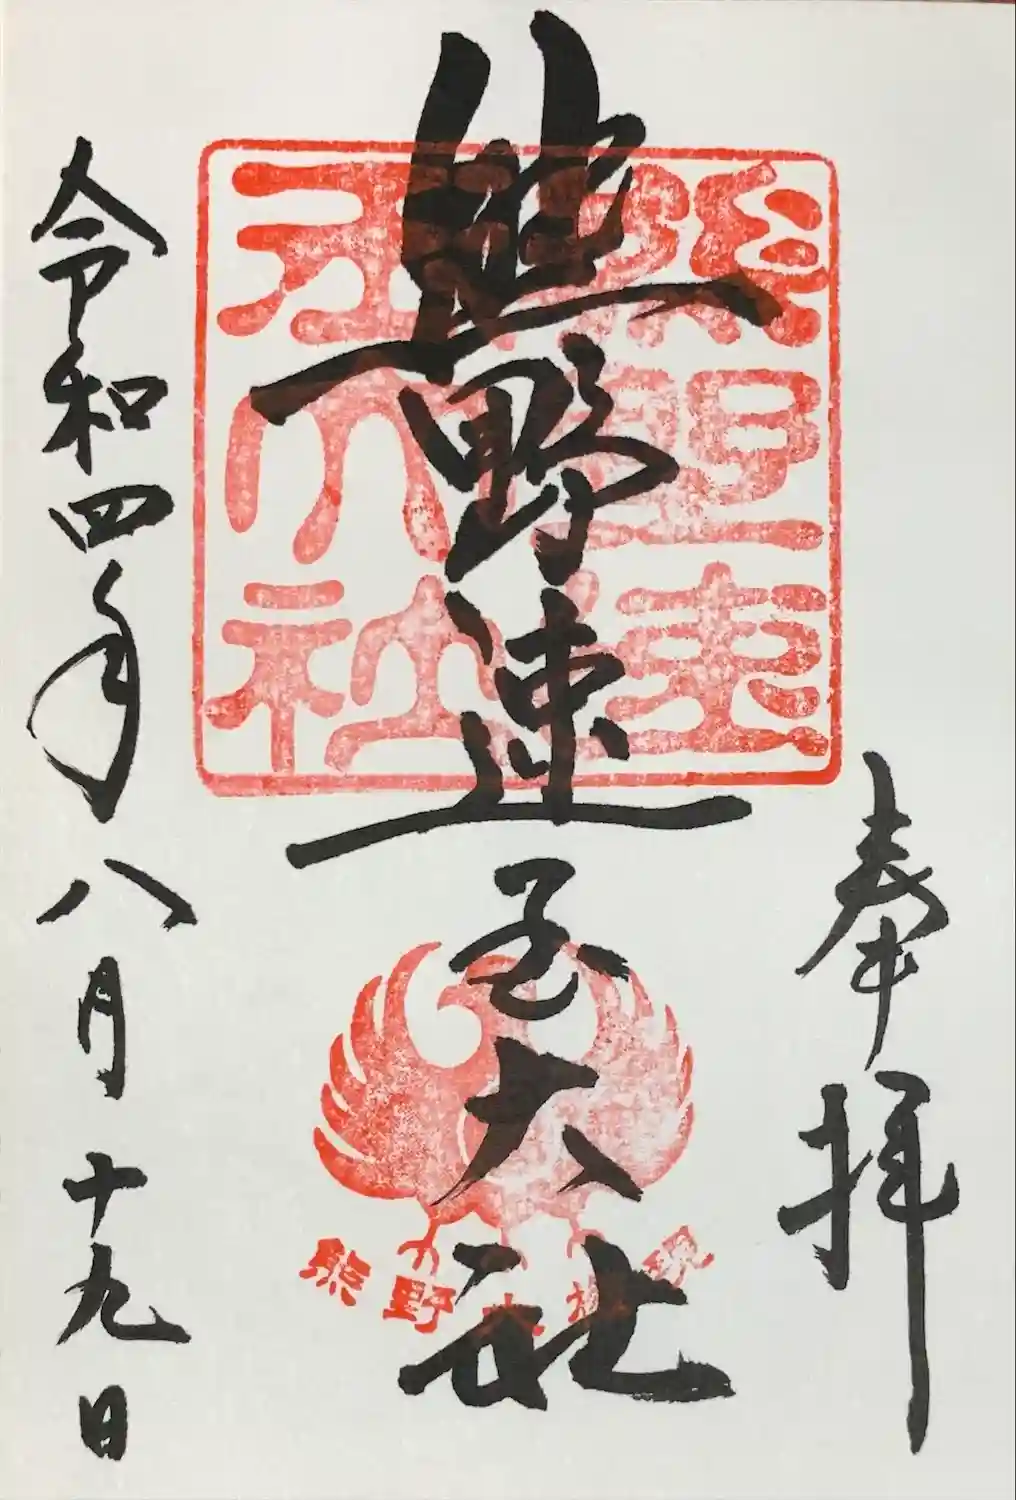 奉拝
熊野速玉大社
令和四年八月十九日
熊野速玉大社
熊野大権現